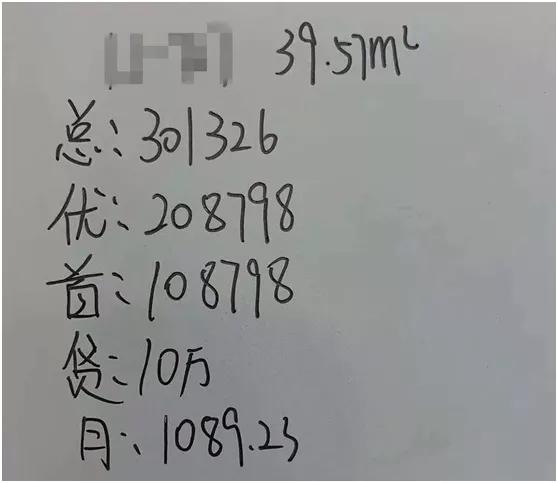 39.57m²
总:301326
优:208798
首:108798
贷:10万
月:1089.23